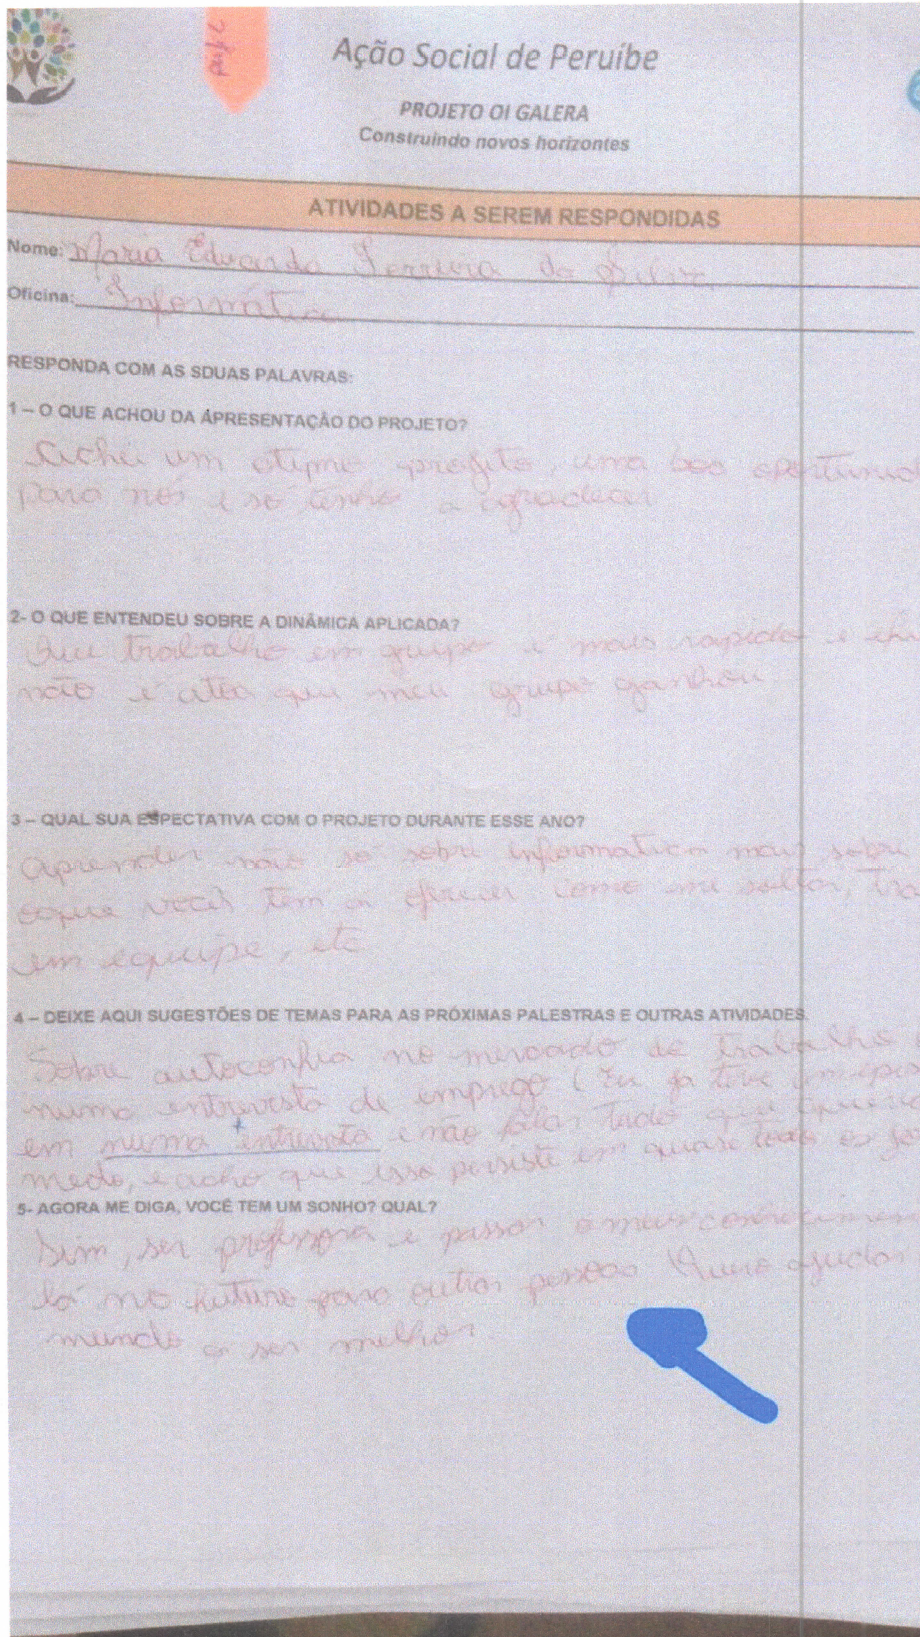 Ação Social de Peruíbe
PROJETO OI GALERA
Construindo novos horizontes
ATIVIDADES A SEREM RESPONDIDAS
Nome: Maria Eduarda Ferreira da Silva
Oficina: Informática
RESPONDA COM AS SDUAS PALAVRAS:
1 – O QUE ACHOU DA APRESENTAÇÃO DO PROJETO?
Achei um otimo projeto, uma boa
para nós e só tenho a agradecer
2- O QUE ENTENDEU SOBRE A DINÂMICA APLICADA?
Que trabalho em grupo é mais rapido e
não é atoa que meu grupo ganhou
3 – QUAL SUA ESPECTATIVA COM O PROJETO DURANTE ESSE ANO?
Aprender não só sobre informatica mais sobre
oque vocês tem a oferecer como me soltar,
em equipe, etc
4 – DEIXE AQUI SUGESTÕES DE TEMAS PARA AS PRÓXIMAS PALESTRAS E OUTRAS ATIVIDADES.
Sobre autoconfia no mercado de trabalho
numa entrevista de emprego (Eu ja tive
em numa entrevista e não falar tudo que
medo, e acho que isso persiste em quase todos os
5- AGORA ME DIGA, VOCÊ TEM UM SONHO? QUAL?
Sim, ser professora e passar o meus
lá no futuro para outras pessoas Quero ajudar
mundo a ser melhor.